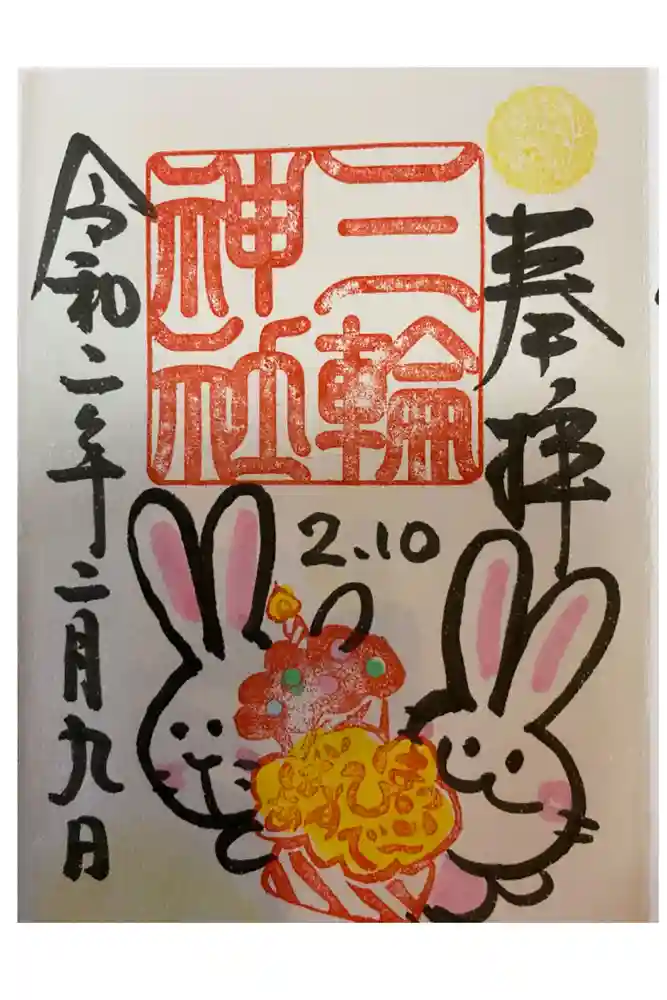 奉拝
三輪
神社
2.10
令和二年二月九日